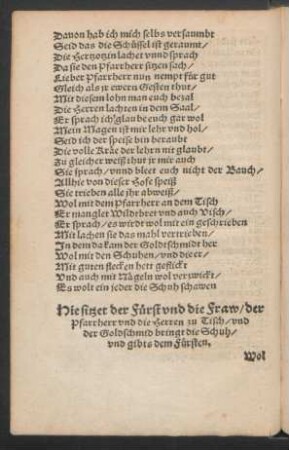 Dauon hab ich mich selbs versaumbt
Seid das die Schüssel ist geraumt/
Die Hertzogin lachet vnnd sprach
Da sie den Pfarrherr sitzen sach/
Lieber Pfarrherr nun nempt für gut
Gleich als jr ewern Gesten thut/
Mit diesem lohn man euch bezal
Die Herren lachten in dem Saal/
Er sprach ich glaube euch gar wol
Mein Magen ist mir lehr vnd hol/
Seid ich der speise bin beraubt
Die volle Bräe der lehrn nit glaubt/
Zu gleicher weiß thut jr mir auch
Sie sprach/vnnd bleet euch nicht der Bauch/
Allhie von dieser Hofe speiß
Sie trieben alle jhr abweiß/
Wol mit dem Pfarrherr an dem Tisch
Er manglet Wildbret vnd auch Visch/
Er sprach/es wirdt wol mit ein geschrieben
Mit lachen sie das mahl vertrieben/
In dem da kam der Goldtschmidt her
Wol mit den Schuhen/vnd die er/
Mit guten flecken hett geflickt
Vnd auch mit Nägeln wol verzwickt/
Es wolt ein jeder die Schuh schawen
Hie sitzet der Fürst vnd die Fraw/der
Pfarrherr vnd die Herren zu Tisch/vnd
der Goldschmid bringt die Schuh/
vnd gibts dem Fürsten.
Wol